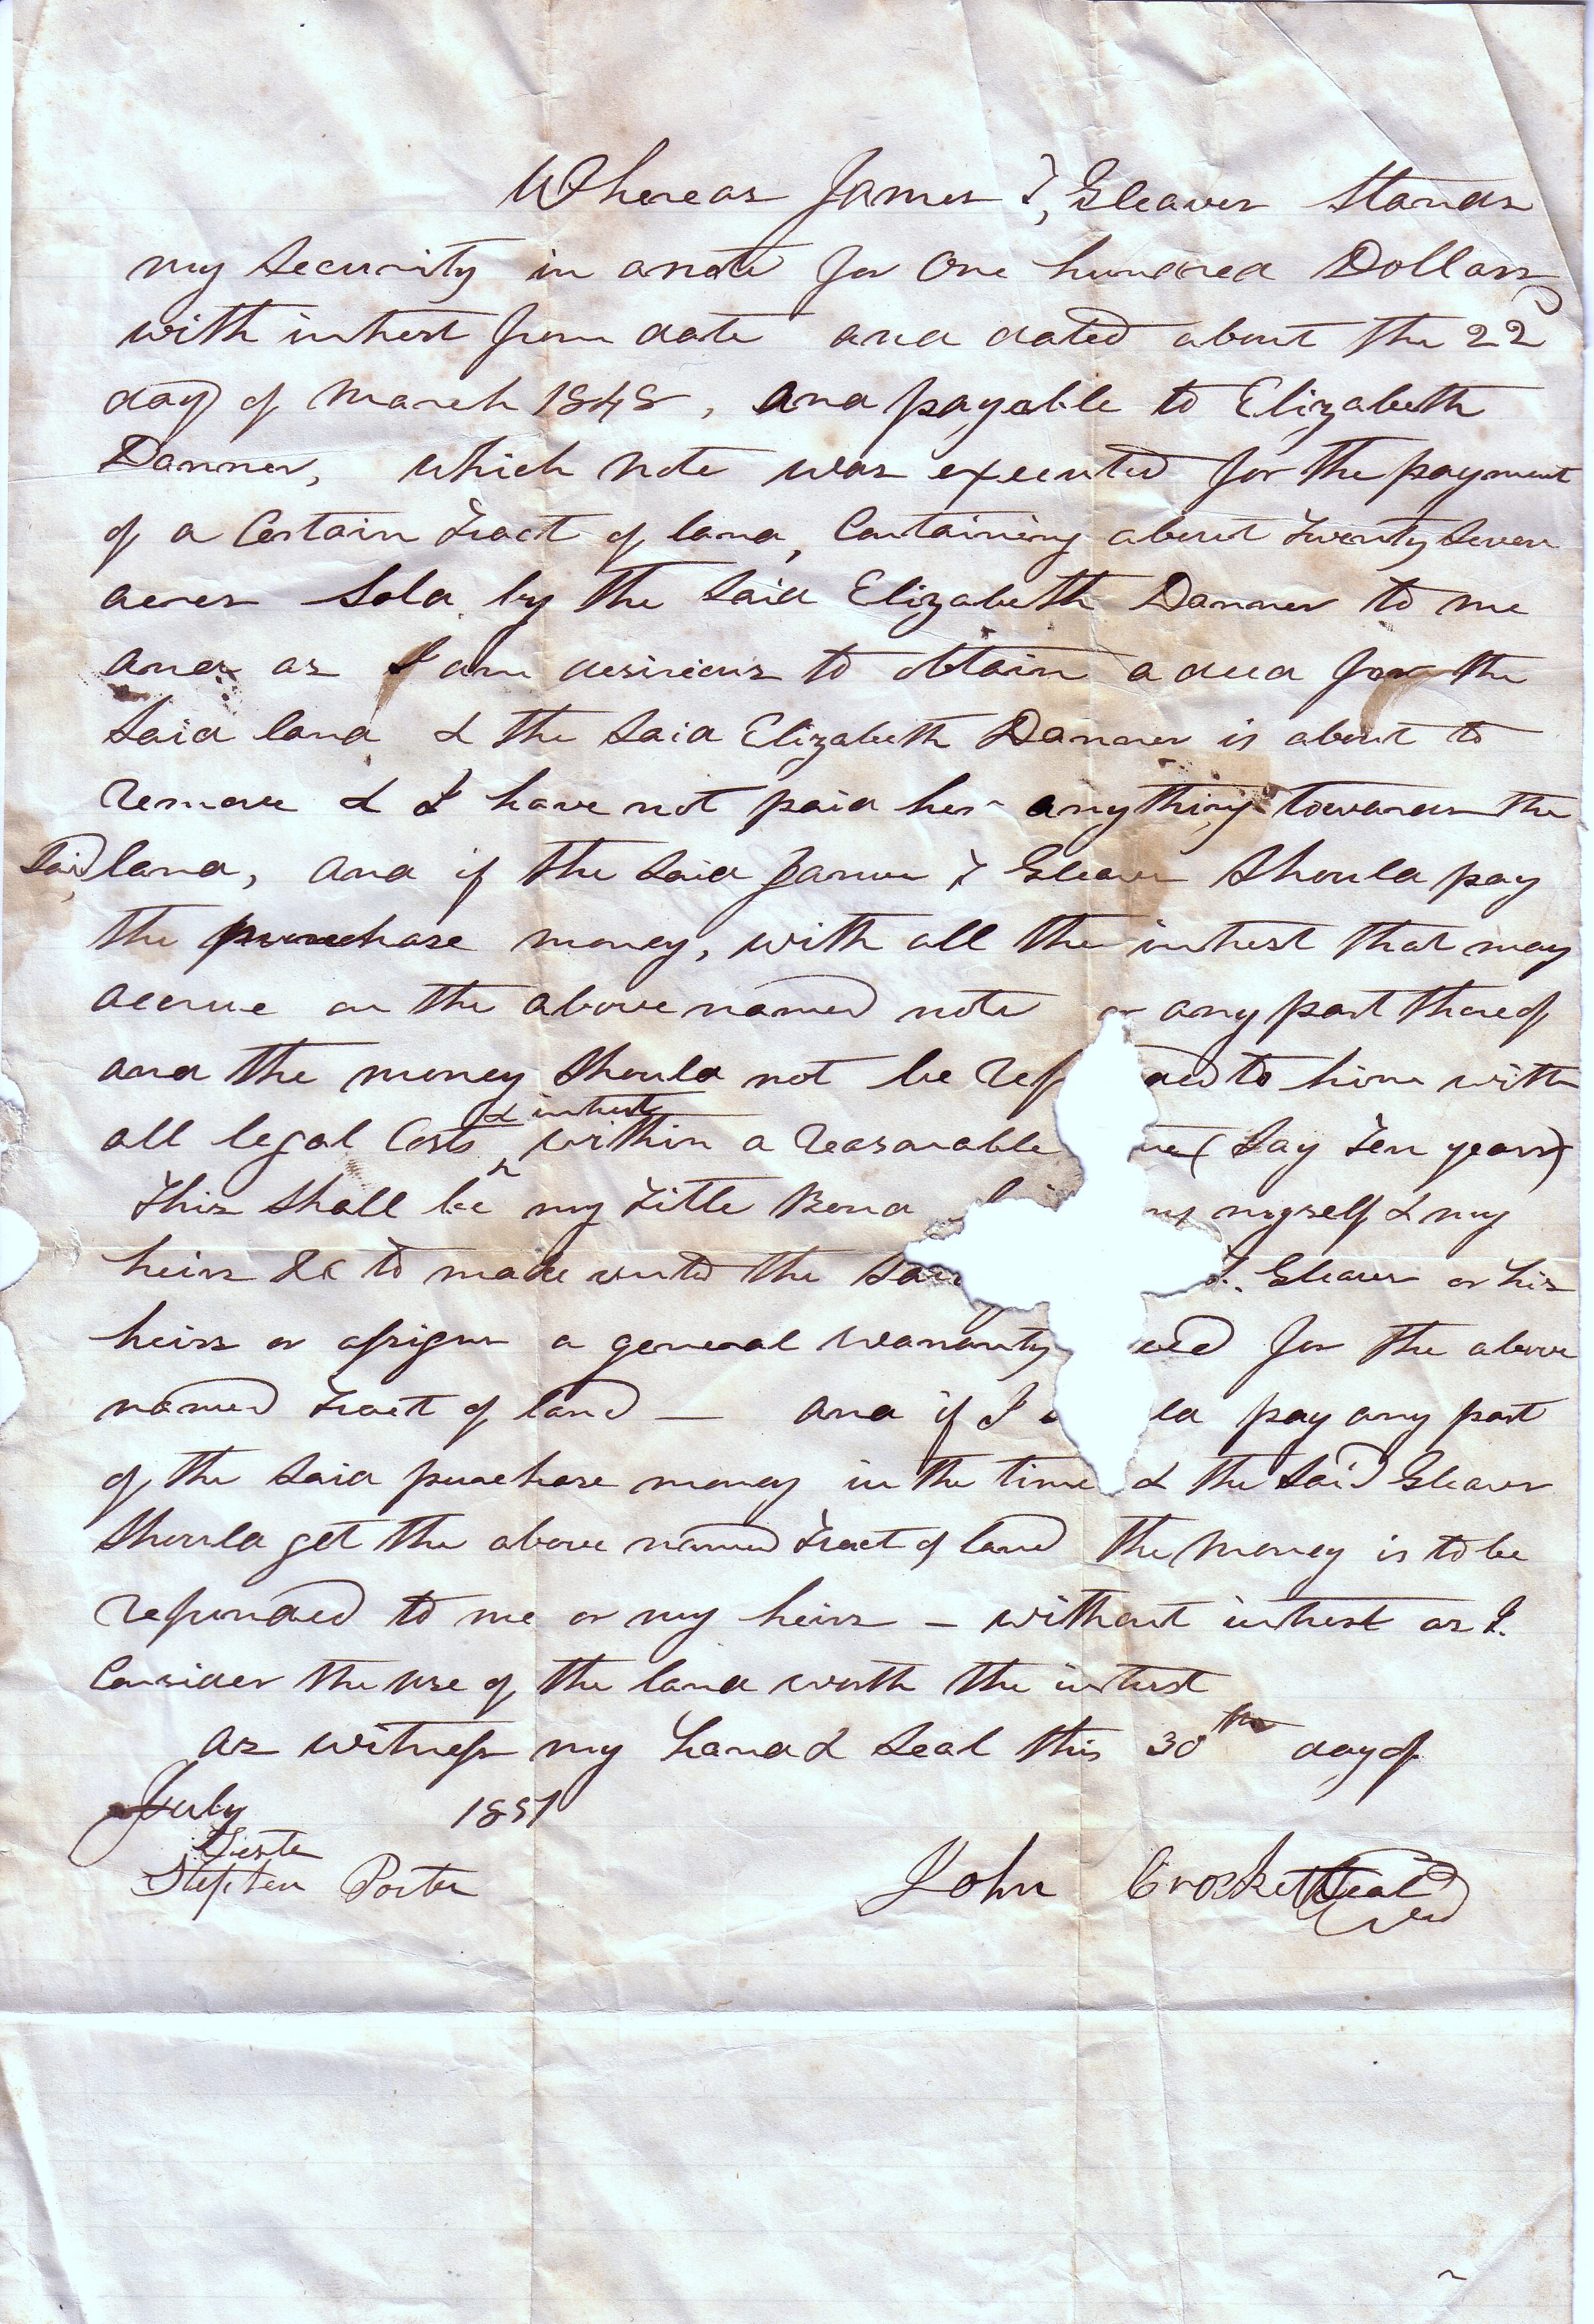 Whereas James T, Gleaver Stands
my Security in a note for One hundred Dollars
with intrest from date and dated about the 22
day of March 1848, And payable to Elizabeth
Danner, which note was executed for the payment
of a Certain Tract of land, Containing about Twenty Seven
acres Sold by the Said Elizabeth Danner to me
and as I am desirious to obtain a deed for the
Said land & the Said Elizabeth Danner is about to
remove & I have not paid her anything towards the
Said land, and if the Said James T Gleaver Should pay
the purechase money, with all the intrest that may
accrue on the above named note or any part thereof
and the money Should not be ref ded to him with
& intrest
all legal Costs within a reasonable (Say Ten years)
This Shall be my Title Bond myself & my
heirs &c to made unto the Said T. Gleaver or his
heirs or assigns a general waranty for the above
named Tract of land — and if I pay any part
of the Said purchase money in the time & the Said Gleaver
Should get the above named Tract of land the money is to be
refunded to me or my heirs — without intrest as I
Consider the use of the land worth the intrest
as witness my hand & Seal this 30th day of
July 1851
Teste
Stephen Porter John Crockett Seal